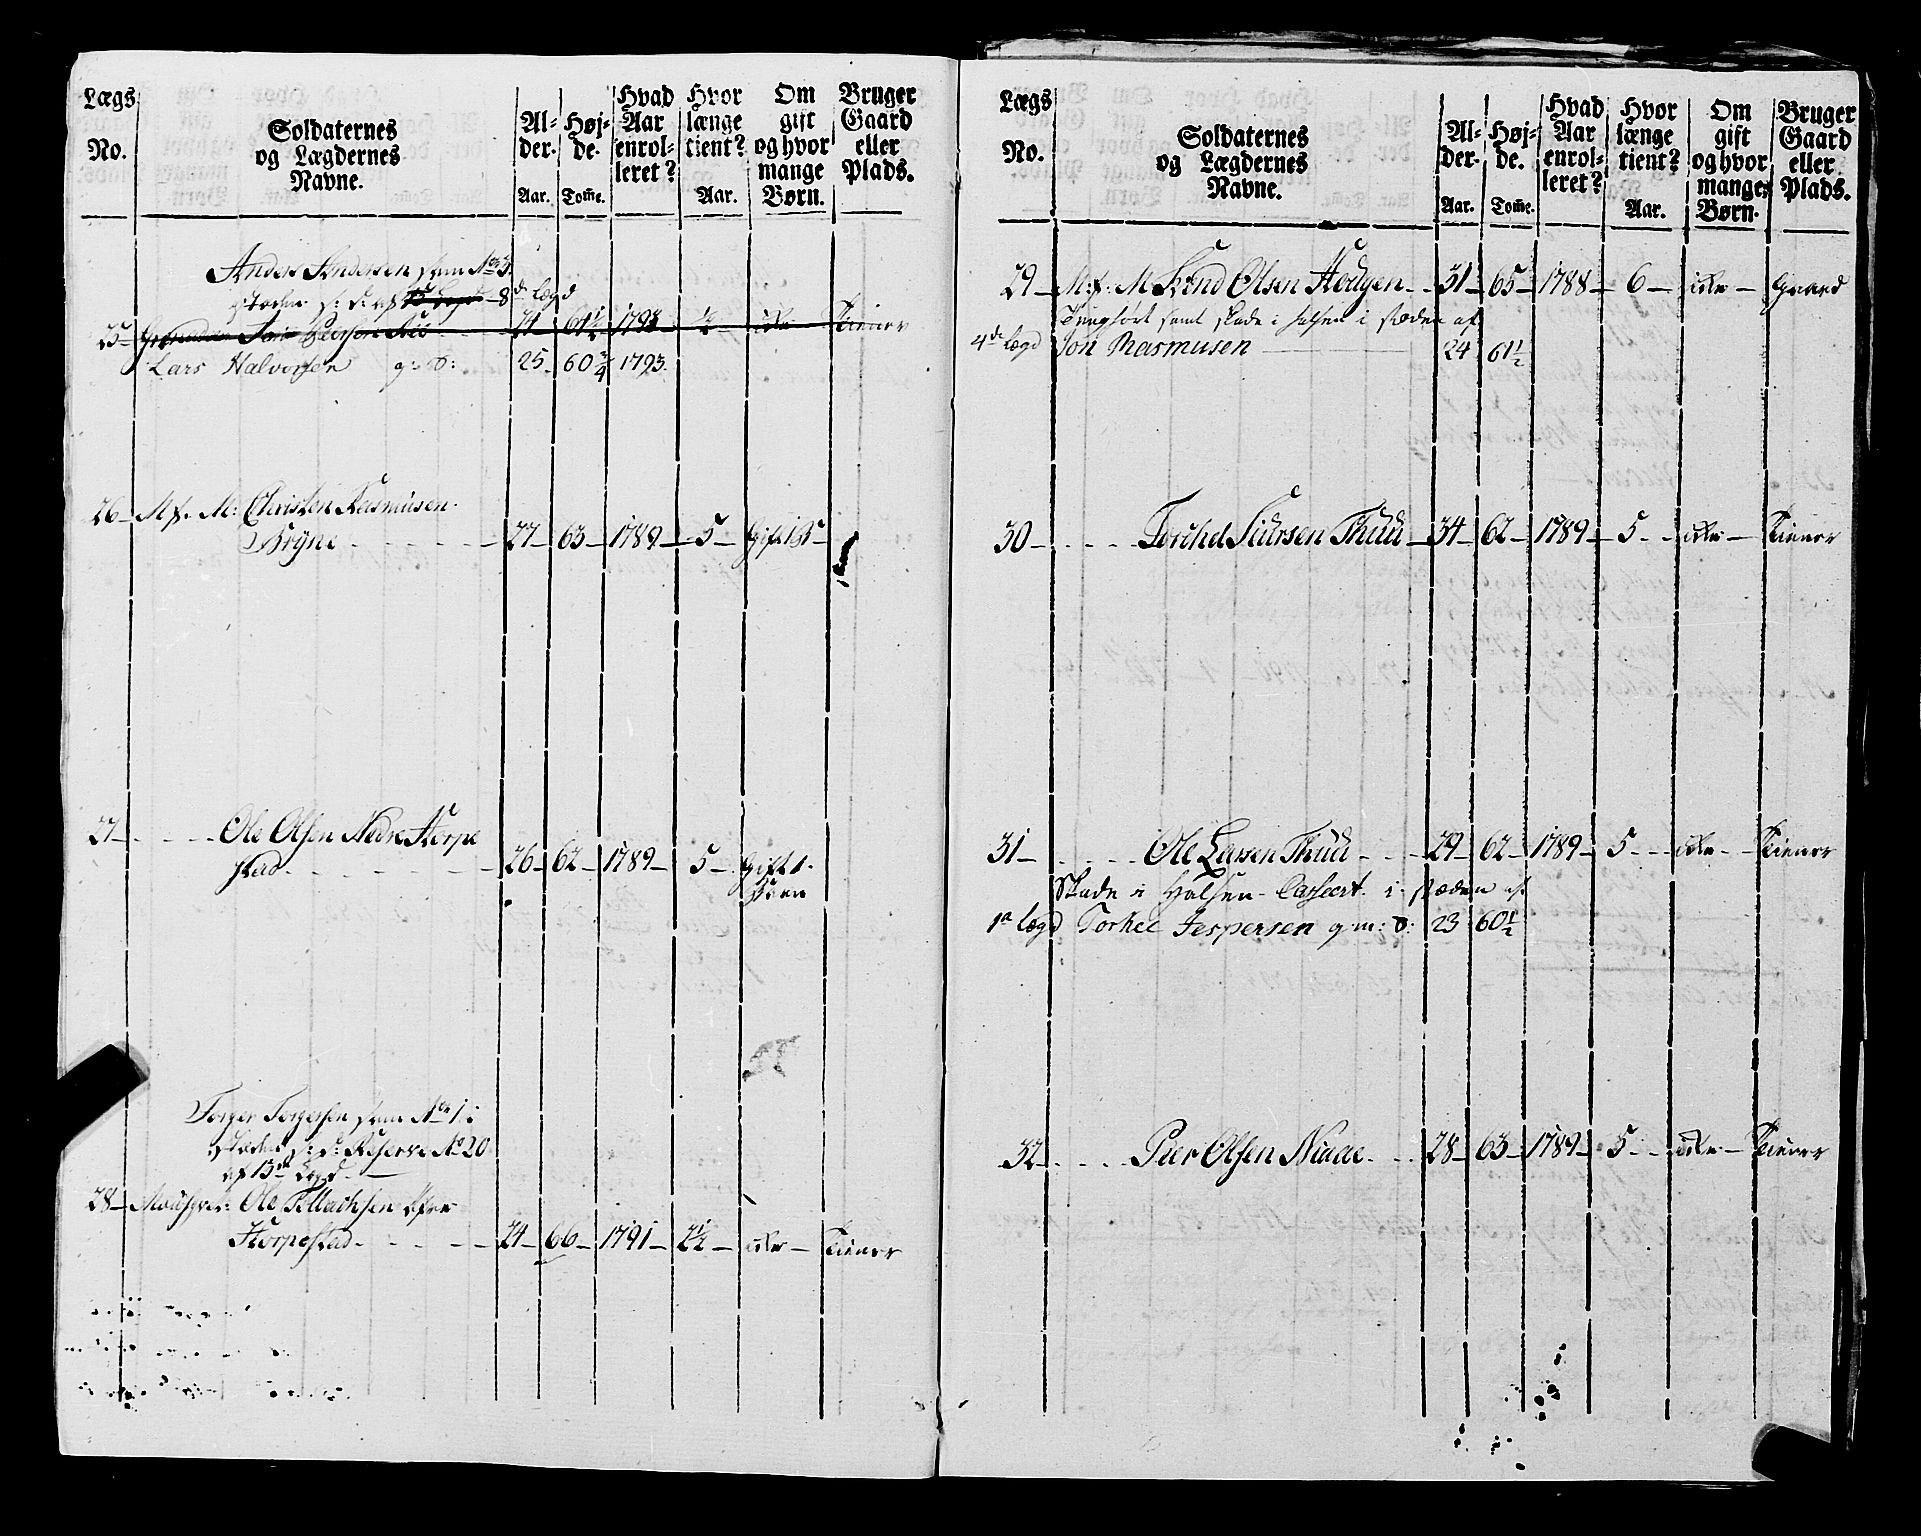 Lægs No. Soldaternes og Lægdernes Navne. Al-der. Aar. Høj-de. Tome. Hvad Aar enrol-leret? Hvor længe tient? Aar. Om gift og hvor mange Børn. Bruger Gaard eller Plads.
Anders Andersen
8de Lægd
25 24 61½ 1793 ½ ikke Tiener
Lars Halvorsen g: D: 25 60¾ 1793.
26 M. f. M: Christen Rasmusen
Bryne 27 63 1789 5 gift 1 B
27 Ole Olsen Nedre Horpe
stad 26 62 1789 5 gift 1
Barn
Torger Torgersen som No 1 i
stæden f: d: Reserve No 20
af 13de Lægd
28 Ole Tellachsen øfre
Horpestad 24 66 1791 2½ ikke Tiener
Lægs No. Soldaternes og Lægdernes Navne. Al-der. Aar. Høj-de. Tome. Hvad Aar enrol-leret? Hvor længe tient? Aar. Om gift og hvor mange Børn. Bruger Gaard eller Plads.
29 M: f: M Svend Olsen Hodgen 31 65 1788 6 ikke Gaard
Tunghørt samt skade i halsen i stæden af
4de Lægd Jon Rasmusen 24 61½
30 Torchel Siursen Thuu 34 62 1789 5 ikke Tiener
31 Ole Larsen Thuu 29 62 1789 5 ikke Tiener
Skade i Halsen Casseert i stæden af
1a Lægd Torkel Jespersen g m: D: 23 60½
32 Peer Olsen Niaae 28 63 1789 5 ikke Tiener